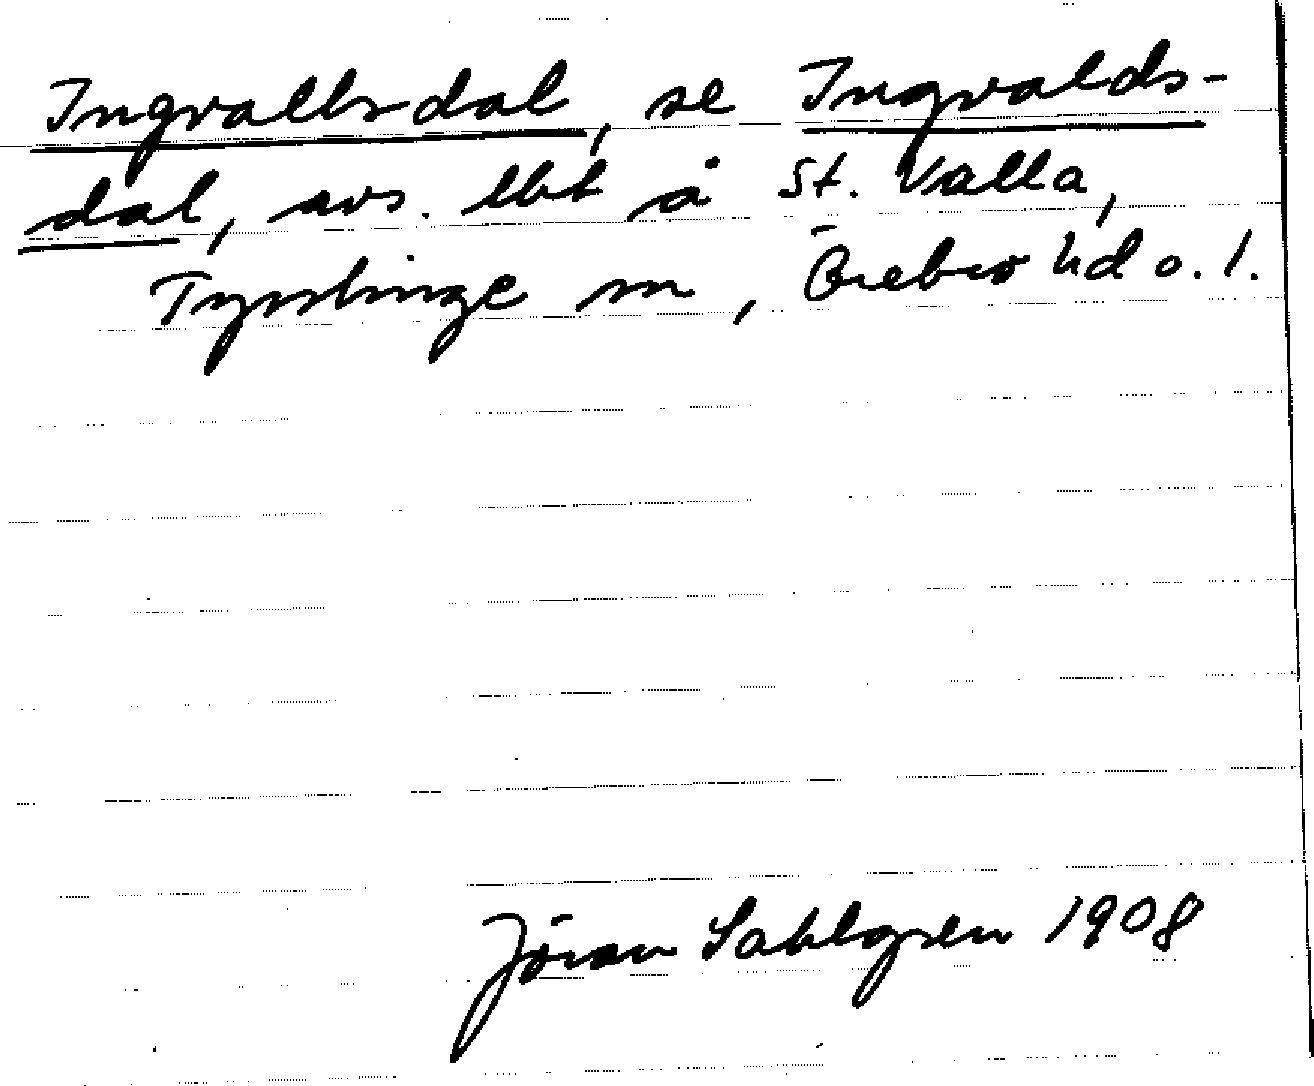 Ingvallsdal, se Ingvalds-
dal, avs. lht å St. Valla,
Tysslinge sn, Örebro hd o. l.
Jöran Sahlgren 1908